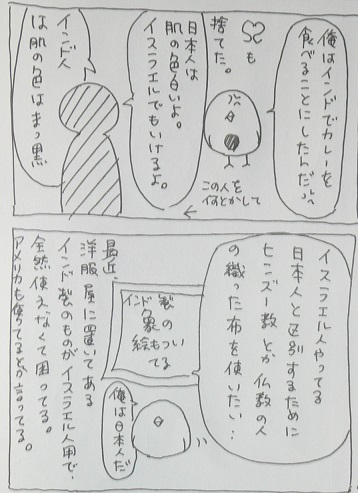 俺はインドでカレーを
食べることにしたんだ
♡も
捨てた。
この人を
何とかして
日本人は
肌の色白いよ。
イスラエルでもいけるよ。
インド人
は肌の色はまっ黒
イスラエル人やってる
日本人と区別するために
ヒンズー教とか仏教の人
の織った布を使いたい…
インド製の
象の
絵もついてる
俺は日本人だ
最近、
洋服屋に置いてある
インド製のものがイスラエル人用で、
全然使えなくて困ってる。
アメリカも奪ってるとか言ってる。